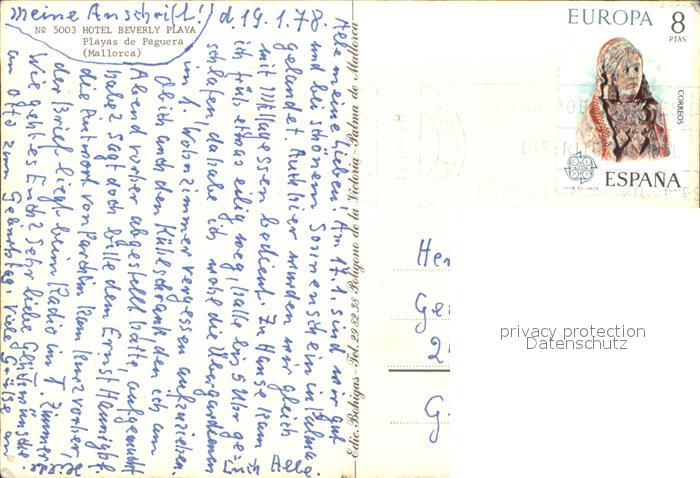 meine Anschrift!) d. 19.1.78.
Nº 5003 HOTEL BEVERLY PLAYA
Playas de Paguera
(Mallorca)
Alle meine Lieben! Am 17.1. sind wir gut
und bei schönem Sonnenschein in Palma
gelandet. Auch hier wurden wir gleich
mit Mittagessen bedient. Zu Hause kam
ich früh etwas eilig weg, hatte bis 5 Uhr ge-
schlafen, da habe ich wohl die Übergardinen
im 1. Wohnzimmer vergessen aufzuziehen.
Ob ich auch den Kühlschrank den ich am
Abend vorher abgestellt hatte, aufgemacht
habe? Sagt doch bitte dem Ernst
die Antwort von Parchim kam kurz vorher,
der Brief liegt beim Radio im 1. Zimmer,
Wie geht es Euch? Sehr liebe Glückwünsche
am zum Geburtstag. Viele Grüße an
Euch Alle.
Edic. Bohigas-Tel. 29 82 28 Poligono de la Victoria-Palma de Mallorca
EUROPA 8
PTAS
CORREOS
ESPAÑA
Her
Ge
2
G
privacy protection
Datenschutz